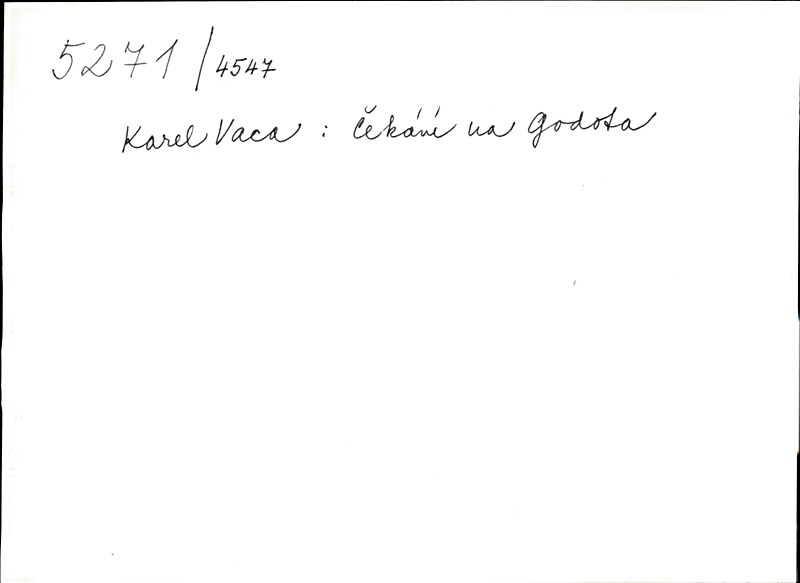 5271/4547
Karel Vaca : Čekání na Godota